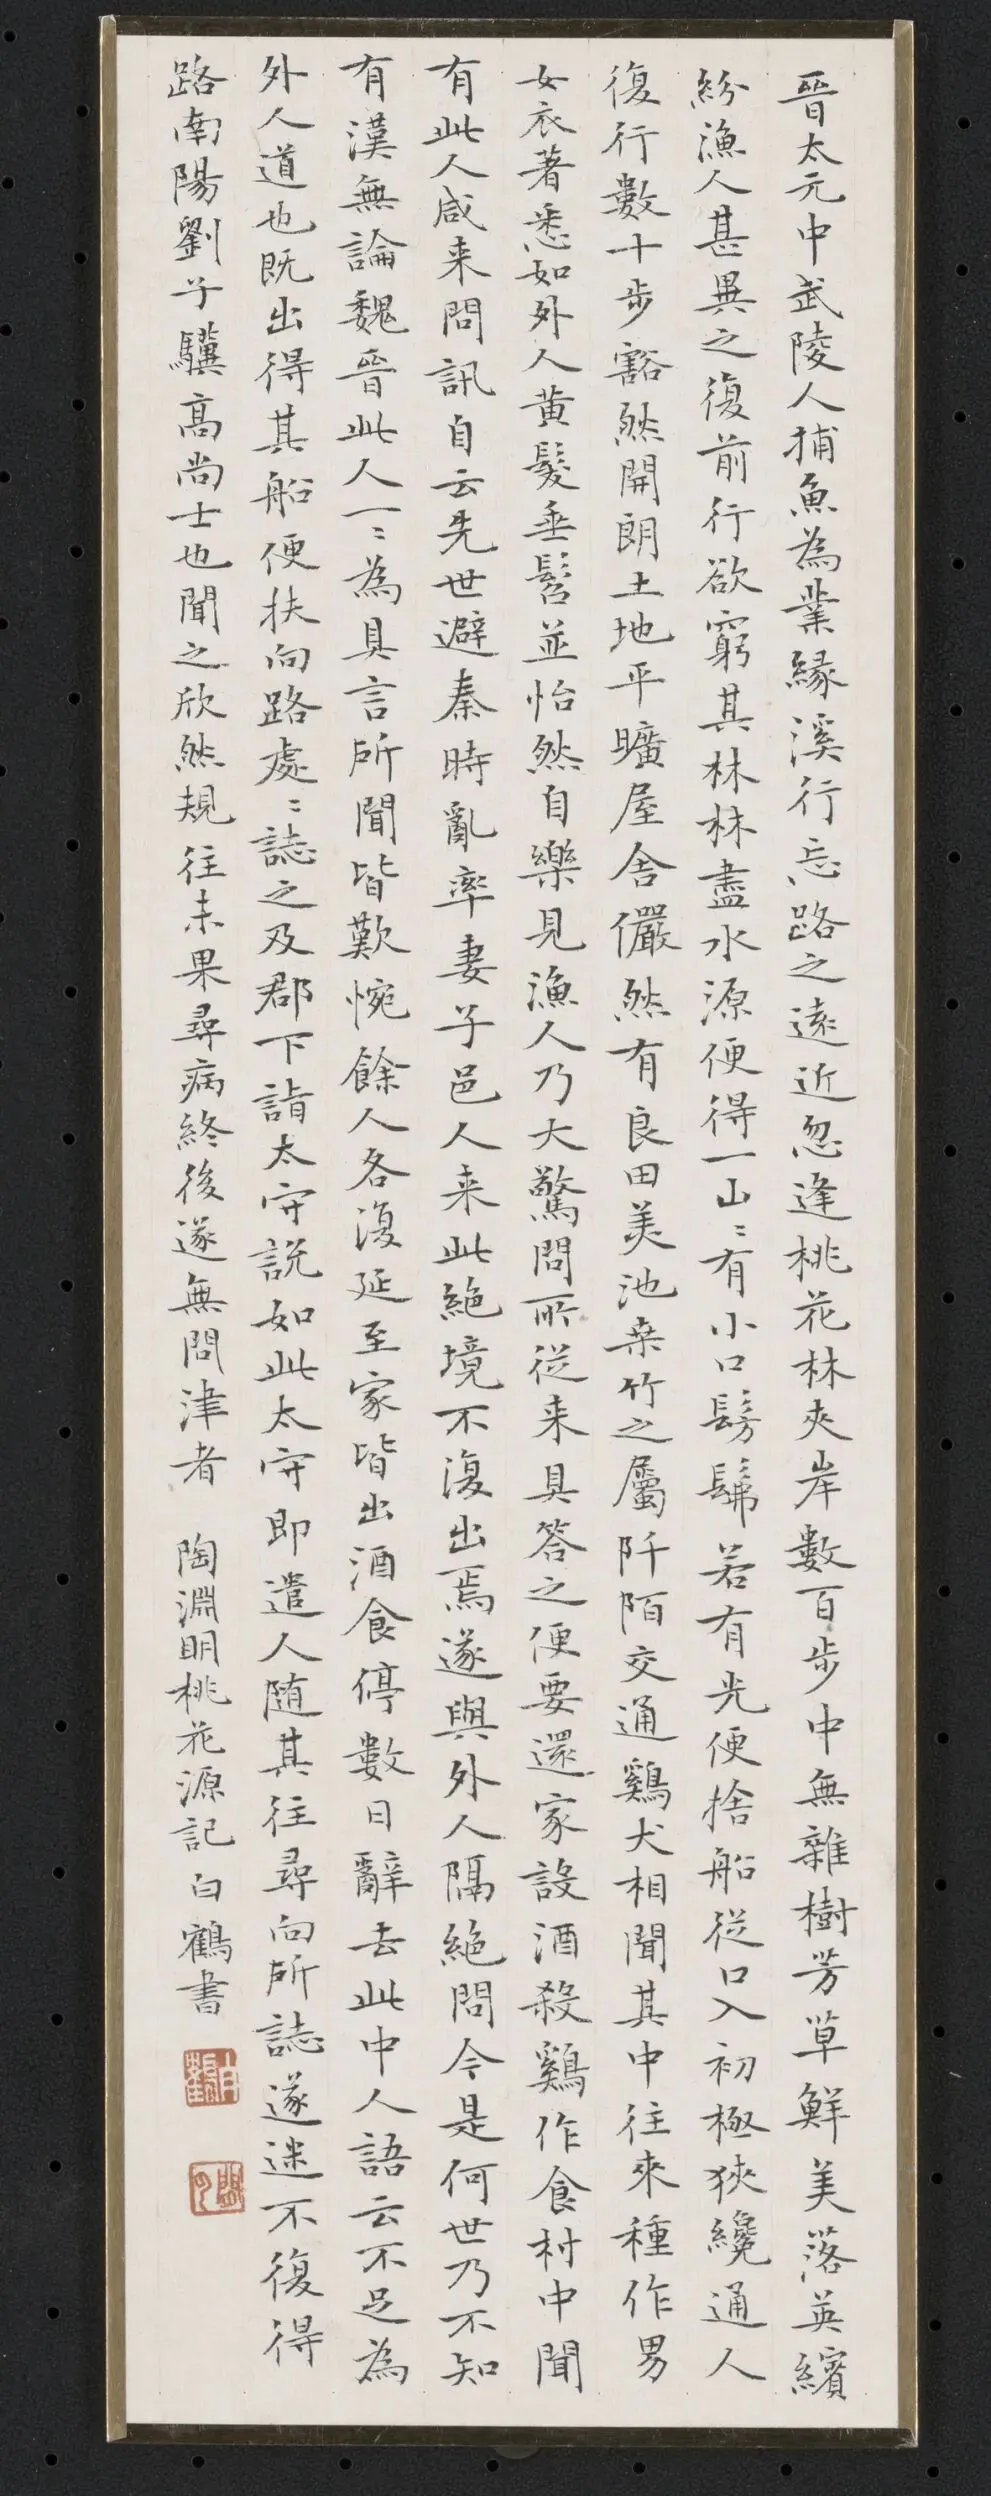 晉太元中武陵人捕魚為業緣溪行忘路之遠近忽逢桃花林夾岸數百步中無雜樹芳草鮮美落英繽
紛漁人甚異之復前行欲窮其林林盡水源便得一山〻有小口髣髴若有光便捨船從口入初極狹纔通人
復行數十步豁然開朗土地平曠屋舍儼然有良田美池桑竹之屬阡陌交通鷄犬相聞其中往來種作男
女衣著悉如外人黃髮垂髫並怡然自樂見漁人乃大驚問所從来具答之便要還家設酒殺鷄作食村中聞
有此人咸来問訊自云先世避秦時亂率妻子邑人来此絶境不復出焉遂與外人隔絶問今是何世乃不知
有漢無論魏晉此人一〻為具言所聞皆歎惋餘人各復延至家皆出酒食停數日辭去此中人語云不足為
外人道也既出得其船便扶向路處〻誌之及郡下詣太守説如此太守即遣人随其往尋向所誌遂迷不復得
路南陽劉子驥高尚士也聞之欣然規往未果尋病終後遂無問津者 陶淵明桃花源記 白鶴書